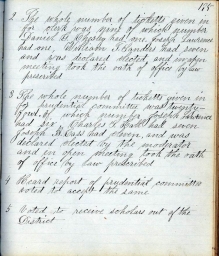 2 The whole number of ticketts given in
for clerk was nine of which number
Daniel H. had one, Joseph
had one, William had seven
and was declared elected, and in open
meeting took the oath of office by law
prescribed
3 The whole number of ticketts given in
for prudential committee was twenty-
of which number Joseph
had six Charles G. had seven
Joseph had eleven, and was
declared elected by the moderator
and in open meeting took the oath
of office by law prescribed
4 Heard report of prudential committee
voted to accept the same.
5 Voted to receive scholars out of the
District